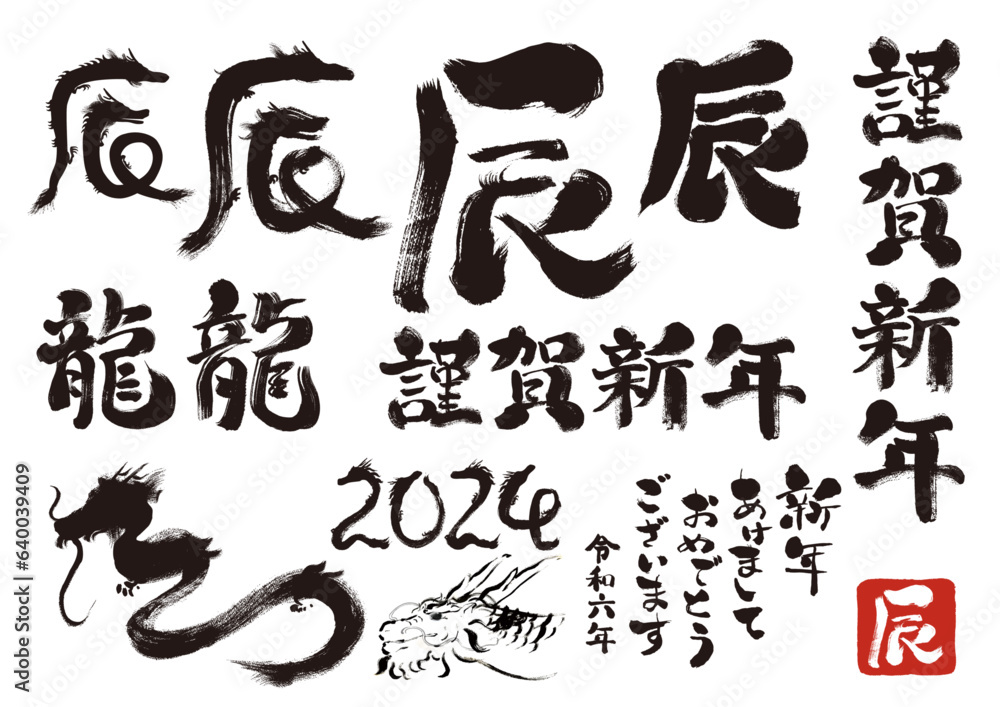 辰
辰
辰
辰
謹賀新年
龍
龍
謹賀新年
2024
新年
あけまして
おめでとう
ございます
令和六年
辰
Adobe Stock | #640039409